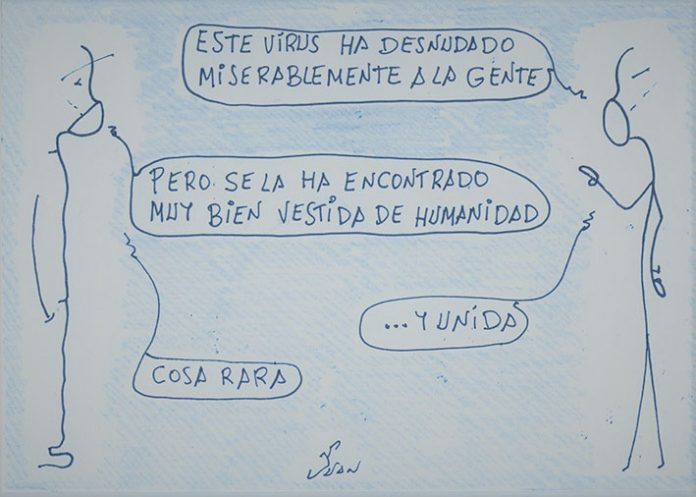 ESTE VIRUS HA DESNUDADO
MISERABLEMENTE A LA GENTE
PERO SE LA HA ENCONTRADO
MUY BIEN VESTIDA DE HUMANIDAD
...Y UNIDA
COSA RARA
JUAN